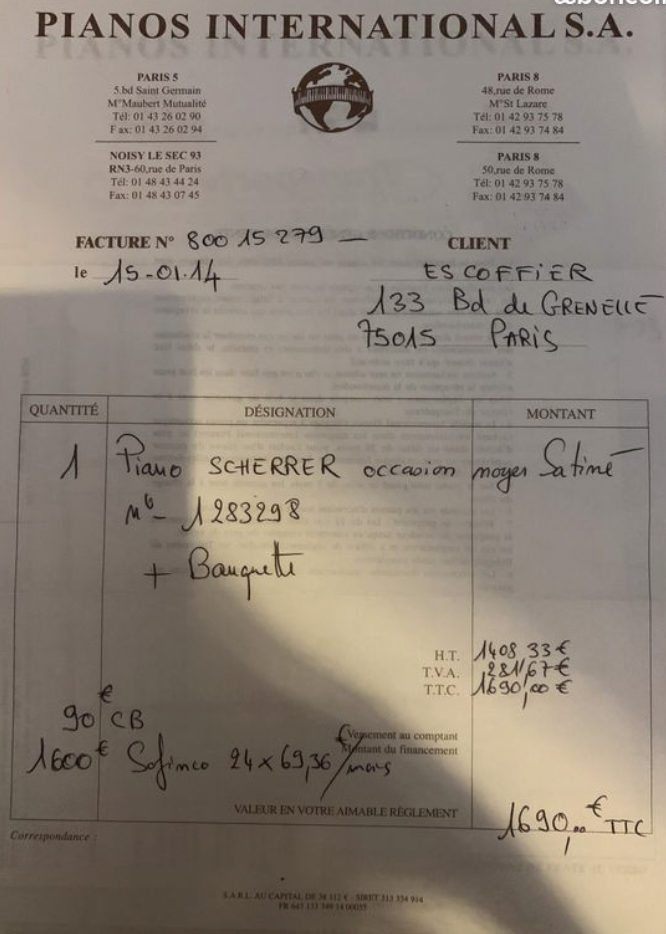 PIANOS INTERNATIONAL S.A.
PARIS 5
5,bd Saint Germain
M°Maubert Mutualité
Tél: 01 43 26 02 90
Fax: 01 43 26 02 94
NOISY LE SEC 93
RN3-60,rue de Paris
Tél: 01 48 43 44 24
Fax: 01 48 43 07 45
PARIS 8
48,rue de Rome
M°St Lazare
Tél: 01 42 93 75 78
Fax: 01 42 93 74 84
PARIS 8
50,rue de Rome
Tél: 01 42 93 75 78
Fax: 01 42 93 74 84
FACTURE N° 800 15 279 —
le 15-01.14
CLIENT
ESCOFFIER
133 Bd de GRENELLE
75015 PARIS
QUANTITÉ DÉSIGNATION MONTANT
1 Piano SCHERRER occasion noyer Satiné
N° 1283298
+ Banquette
H.T. 1408,33 €
T.V.A. 281,67 €
T.T.C. 1690,00 €
90 € CB
Versement au comptant
Montant du financement
1600 € Sofinco 24 x 69,36 €/mois
VALEUR EN VOTRE AIMABLE RÈGLEMENT
1690,00 € TTC
Correspondance :
S.A R L. AU CAPITAL DE 38 112 € - SIRET 313 334 914